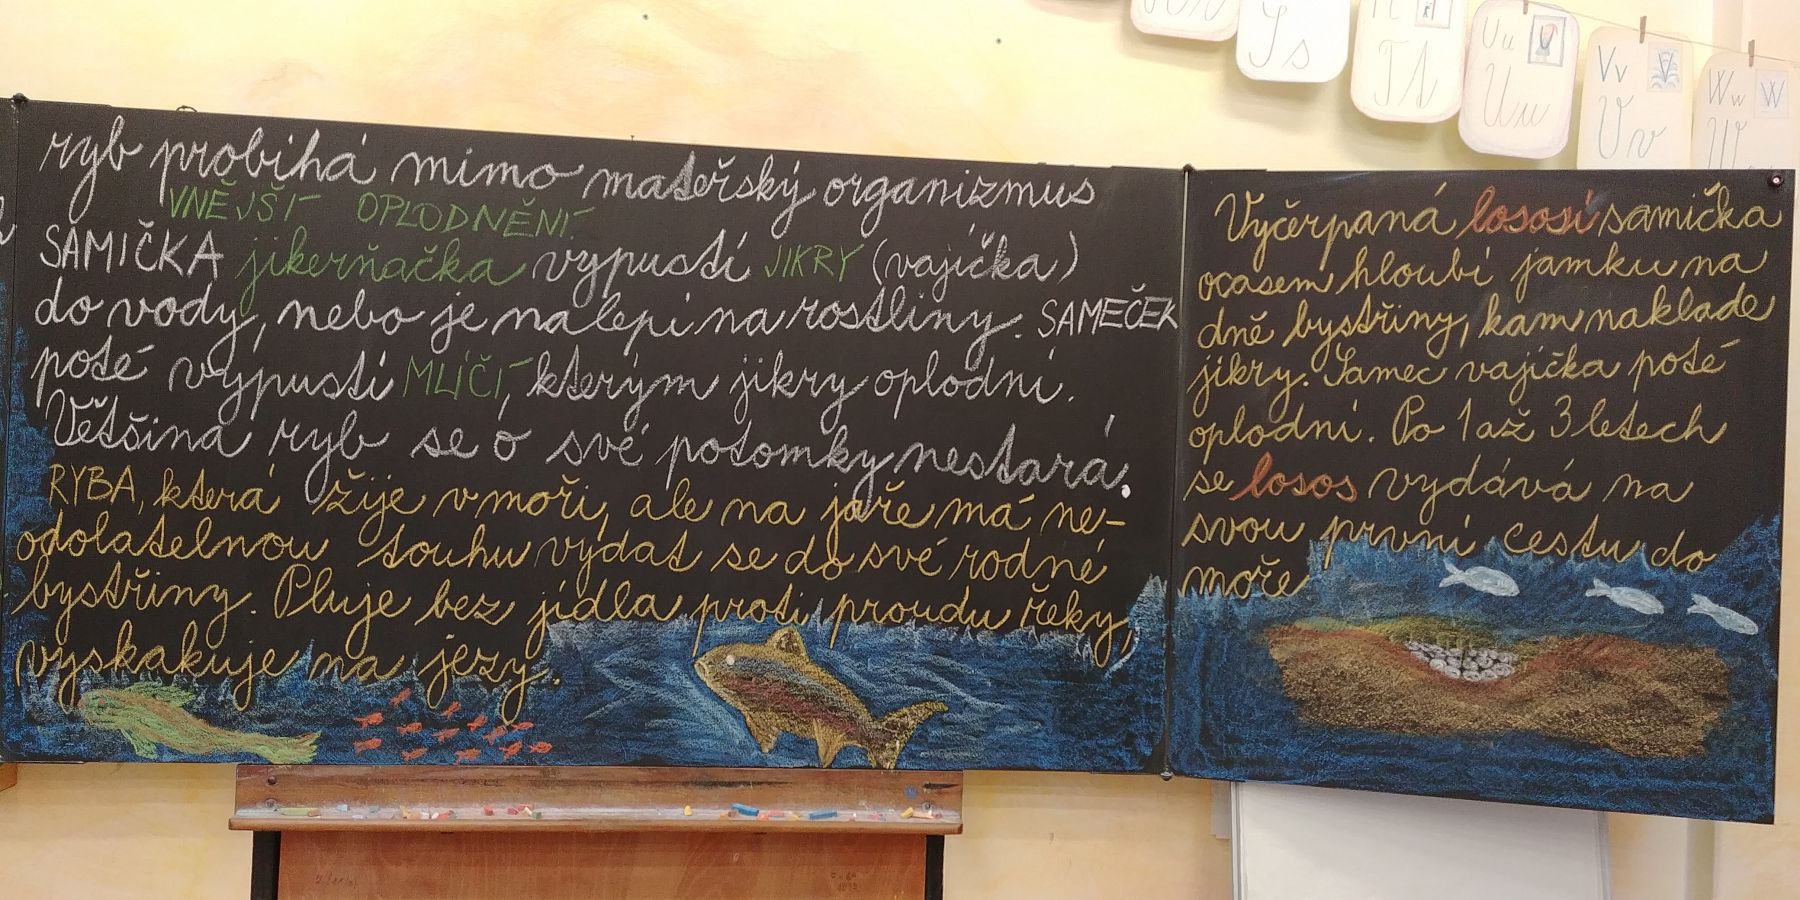 ryb probíhá mimo mateřský organizmus
VNĚJŠÍ OPLODNĚNÍ.
SAMIČKA jikernačka vypustí JIKRY (vajíčka)
do vody, nebo je nalepí na rostliny. SAMEČEK
poté vypustí MLÍČÍ, kterým jikry oplodní.
Většina ryb se o své potomky nestará.
RYBA, která žije v moři, ale na jaře má ne-
odolatelnou touhu vydat se do své rodné
bystřiny. Pluje bez jídla proti proudu řeky,
vyskakuje na jezy.
Vyčerpaná lososí samička
ocasem hloubí jamku na
dně bystřiny, kam naklade
jikry. Samec vajíčka poté
oplodní. Po 1 až 3 letech
se losos vydává na
svou první cestu do
moře
S s
T t
U u
U u
V v
V v
W w
W